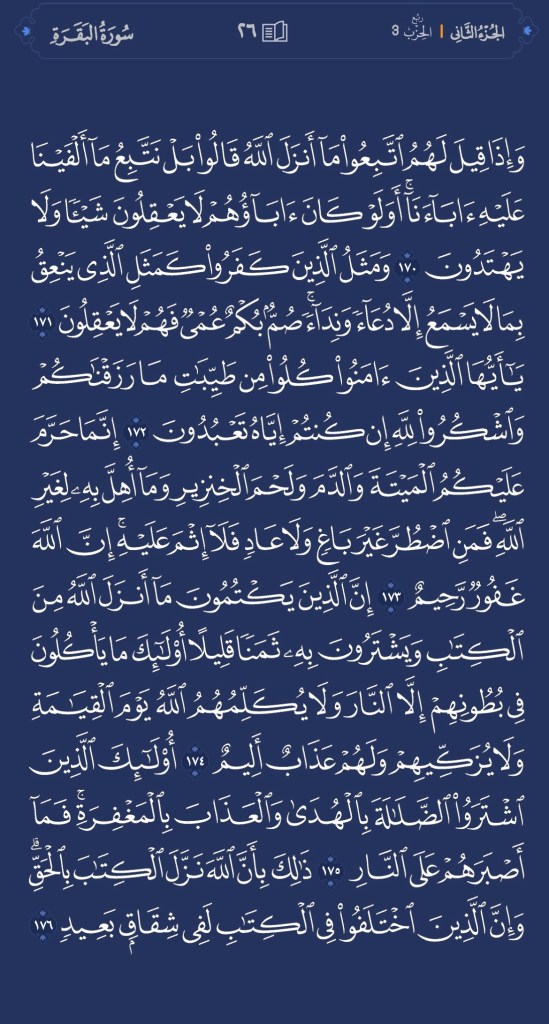 الجُزْءُ الثَّانِي | رُبع الحِزْب 3 ٢٦ سُورَةُ البَقَرَةِ
وَإِذَا قِيلَ لَهُمُ ٱتَّبِعُوا۟ مَآ أَنزَلَ ٱللَّهُ قَالُوا۟ بَلْ نَتَّبِعُ مَآ أَلْفَيْنَا
عَلَيْهِ ءَابَآءَنَآ ۚ أَوَلَوْ كَانَ ءَابَآؤُهُمْ لَا يَعْقِلُونَ شَيْـًٔا وَلَا
يَهْتَدُونَ ١٧٠ وَمَثَلُ ٱلَّذِينَ كَفَرُوا۟ كَمَثَلِ ٱلَّذِى يَنْعِقُ
بِمَا لَا يَسْمَعُ إِلَّا دُعَآءً وَنِدَآءً ۚ صُمٌّۢ بُكْمٌ عُمْىٌ فَهُمْ لَا يَعْقِلُونَ ١٧١
يَـٰٓأَيُّهَا ٱلَّذِينَ ءَامَنُوا۟ كُلُوا۟ مِن طَيِّبَـٰتِ مَا رَزَقْنَـٰكُمْ
وَٱشْكُرُوا۟ لِلَّهِ إِن كُنتُمْ إِيَّاهُ تَعْبُدُونَ ١٧٢ إِنَّمَا حَرَّمَ
عَلَيْكُمُ ٱلْمَيْتَةَ وَٱلدَّمَ وَلَحْمَ ٱلْخِنزِيرِ وَمَآ أُهِلَّ بِهِۦ لِغَيْرِ
ٱللَّهِ ۖ فَمَنِ ٱضْطُرَّ غَيْرَ بَاغٍ وَلَا عَادٍ فَلَآ إِثْمَ عَلَيْهِ ۚ إِنَّ ٱللَّهَ
غَفُورٌ رَّحِيمٌ ١٧٣ إِنَّ ٱلَّذِينَ يَكْتُمُونَ مَآ أَنزَلَ ٱللَّهُ مِنَ
ٱلْكِتَـٰبِ وَيَشْتَرُونَ بِهِۦ ثَمَنًا قَلِيلًا أُو۟لَـٰٓئِكَ مَا يَأْكُلُونَ
فِى بُطُونِهِمْ إِلَّا ٱلنَّارَ وَلَا يُكَلِّمُهُمُ ٱللَّهُ يَوْمَ ٱلْقِيَـٰمَةِ
وَلَا يُزَكِّيهِمْ وَلَهُمْ عَذَابٌ أَلِيمٌ ١٧٤ أُو۟لَـٰٓئِكَ ٱلَّذِينَ
ٱشْتَرَوُا۟ ٱلضَّلَـٰلَةَ بِٱلْهُدَىٰ وَٱلْعَذَابَ بِٱلْمَغْفِرَةِ ۚ فَمَآ
أَصْبَرَهُمْ عَلَى ٱلنَّارِ ١٧٥ ذَٰلِكَ بِأَنَّ ٱللَّهَ نَزَّلَ ٱلْكِتَـٰبَ بِٱلْحَقِّ ۗ
وَإِنَّ ٱلَّذِينَ ٱخْتَلَفُوا۟ فِى ٱلْكِتَـٰبِ لَفِى شِقَاقٍۭ بَعِيدٍ ١٧٦